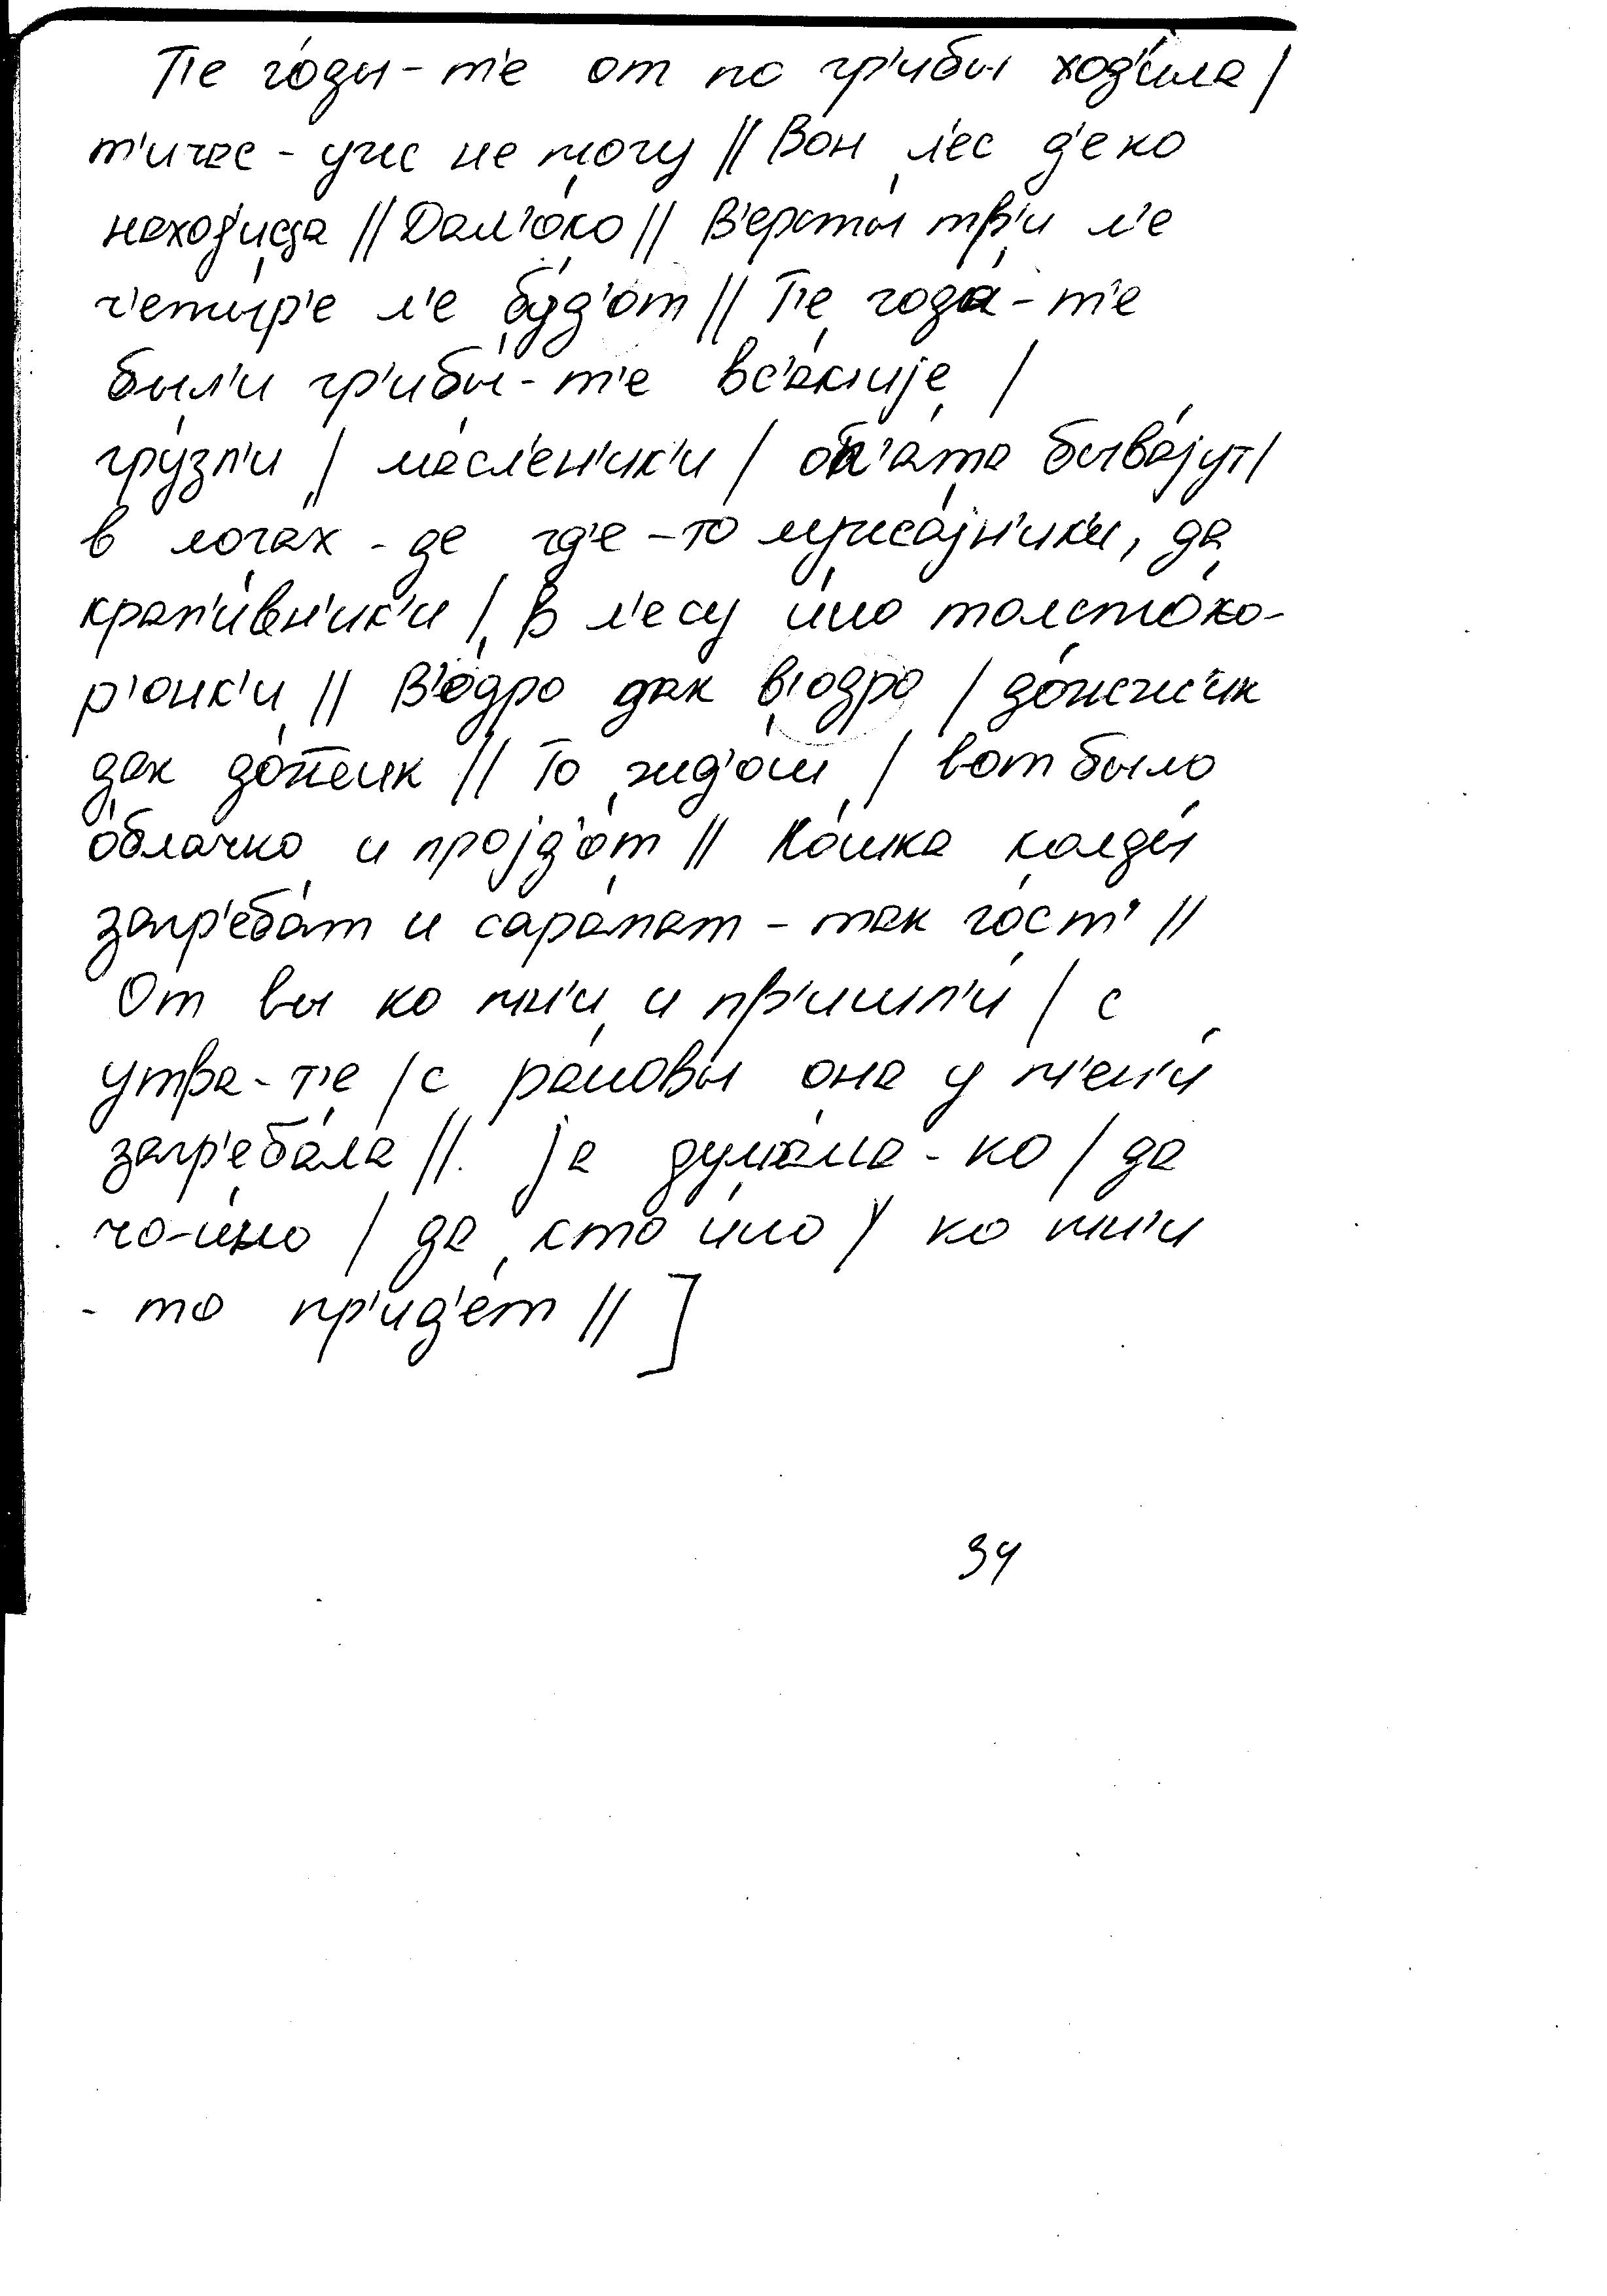 Т'е го́ды-т'е от по гр'ибы́ ход'и́ла /
т'ичас - уж не могу́ // Вон л'ес д'е ко
наход'ица // Дал'о́ко // В'ерсты́ тр'и л'е
ч'еты́р'е л'е бу́д'от // Т'е года́-т'е
бы́л'и гр'ибы́-т'е вс'а́к'ије /
гру́зл'и / ма́сл'ен'ик'и / оп'а́та быва́јут /
в лога́х - да гд'е-то лужа́јн'ик'и, да
крап'и́вн'ик'и / В л'есу́ и́но толсто́ко-
р'онк'и // В'о́дро дак в'о́дро / до́жж'ик
дак до́жжик // То жд'ош / вот бы́ло
о́блачко и пројд'о́т // Ко́шка колды́
загр'еба́т и сара́пат - так гост' //
От вы ко мн'и и пр'ишл'и́ / с
утра-т'е / с рановы́ она у м'ен'и́
загр'еба́ла // ја ду́мала-ко / да
чо-и́но / да кто и́но / ко мн'и
- то пр'ид'е́т // ]
34